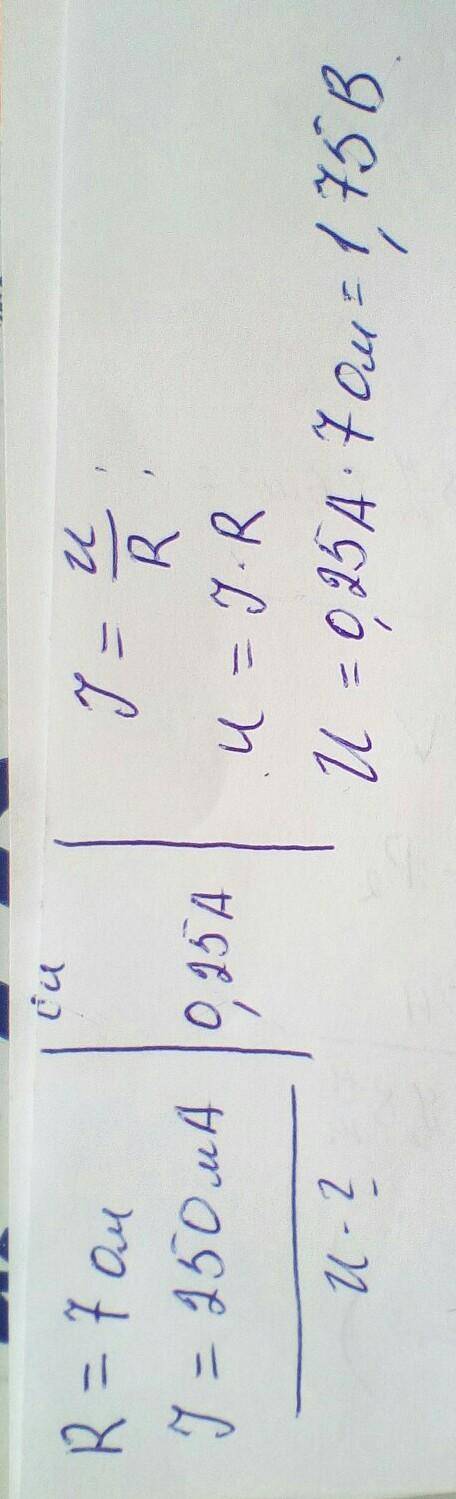 R = 7 Ом
I = 250 мА
U - ?
СИ
0,25 А
I = U/R ;
U = I · R
U = 0,25 А · 7 Ом = 1,75 В